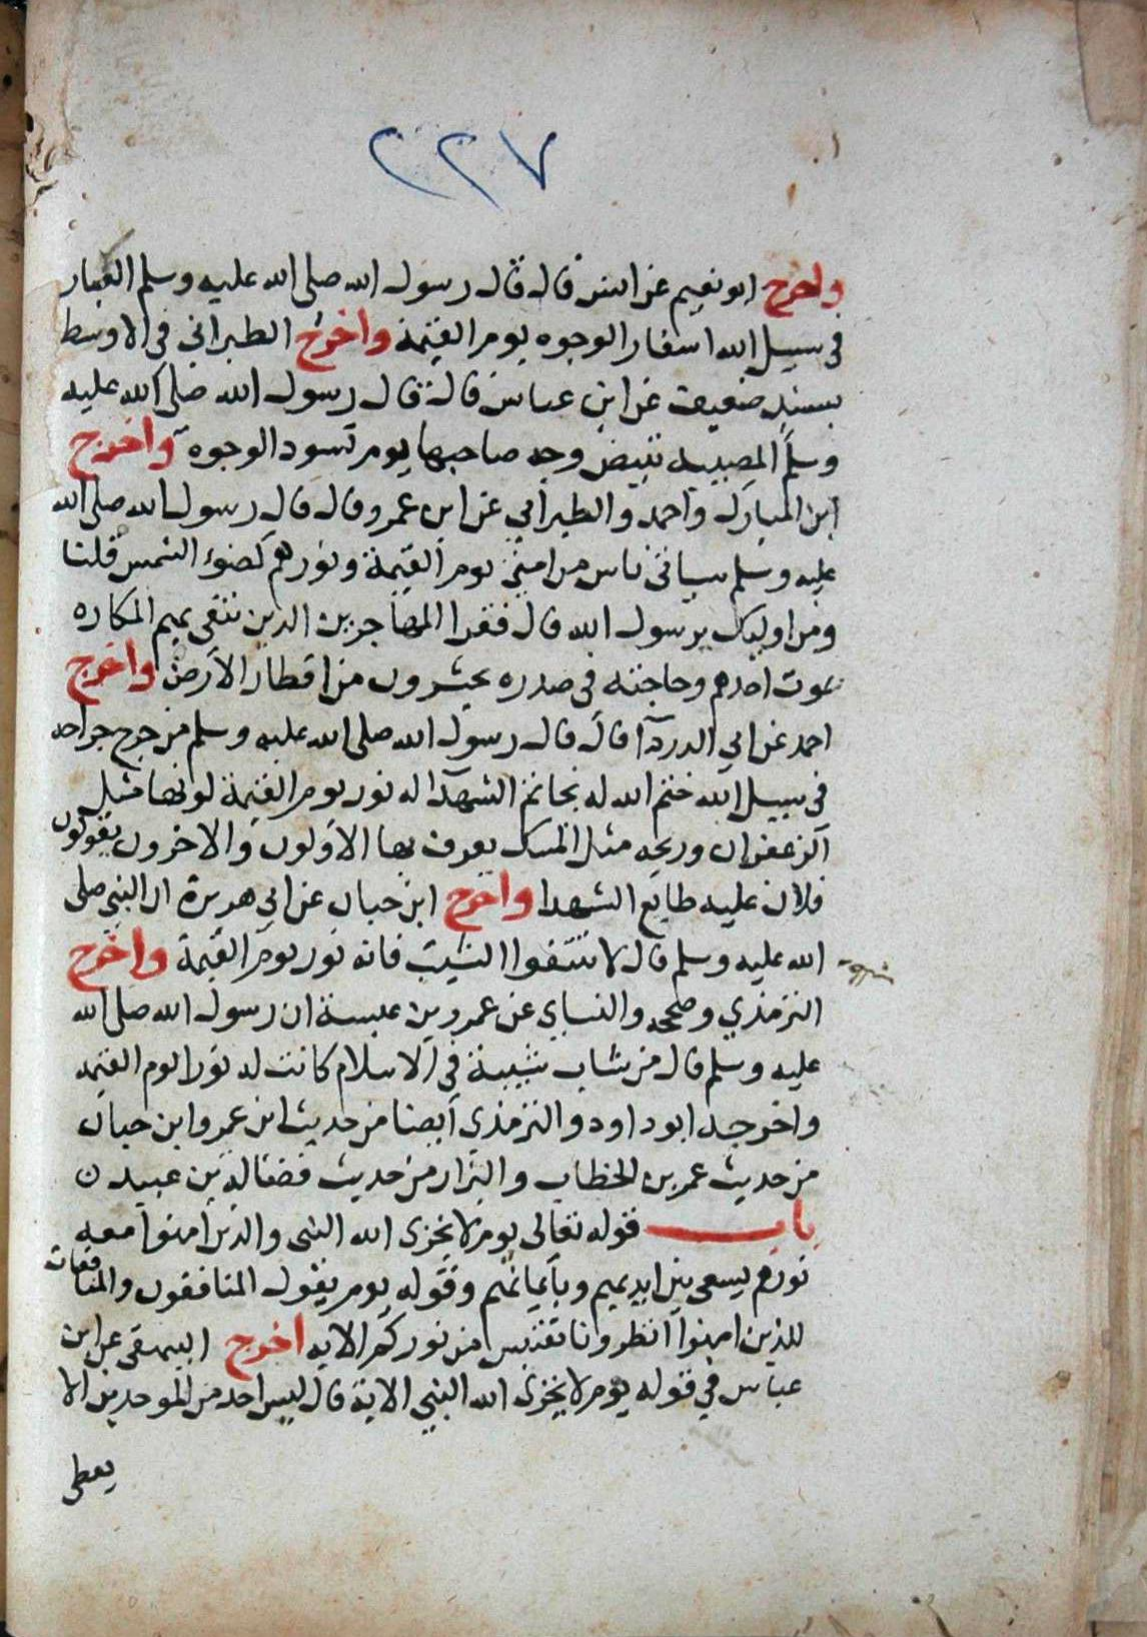 ٢٢٧
واخرج ابو نعيم عن انس قال قال رسول الله صلى الله عليه وسلم الغبار
في سبيل الله اسفار الوجوه يوم القيمة واخرج الطبراني في الاوسط
بسند ضعيف عن ابن عباس قال قال رسول الله صلى الله عليه
وسلم المصيبة تبيض وجه صاحبها يوم تسود الوجوه واخرج
ابن المبارك واحمد والطبراني عن ابن عمرو قال قال رسول الله صلى الله
عليه وسلم سياتي ناس من امتي يوم القيمة ونورهم كضوء الشمس قلنا
ومن اوليك يرسول الله قال فقرا المهاجرين الذين تتقى بهم المكاره
يموت احدهم وحاجته في صدره يحشرون من اقطار الارض واخرج
احمد عن ابي الدردآ قال قال رسول الله صلى الله عليه وسلم من جرح جراحه
في سبيل الله ختم الله له بخاتم الشهدآ له نور يوم القيمة لونها مثل
الزعفران وريحه مثل المسك يعرف بها الاولون والاخرون يقولون
فلان عليه طابع الشهدا واخرج ابن حبان عن ابي هريرة ان النبي صلى
الله عليه وسلم قال لا تنتفوا الشيب فانه نور يوم القيمة واخرج
الترمذي وصححه والنساي عن عمرو بن عبسة ان رسول الله صلى الله
عليه وسلم قال من شاب شيبة في الاسلام كانت له نورا يوم القيمه
واخرجه ابو داود والترمذي ايضا من حديث ابن عمر وابن حبان
من حديث عمر بن الخطاب والبزار من حديث فضالة بن عبيد ن
باب قوله تعالى يوم لا يخزى الله النبى والذين امنوا معه
نورهم يسعى بين ايديهم وبأيمانهم وقوله يوم يقول المنافقون والمنافقات
للذين امنوا انظرونا نقتبس من نوركم الايه اخرج البيهقى عن ابن
عباس في قوله يوم لا يخزى الله النبي الاية قال ليس احد من الموحدين الا
يعطى